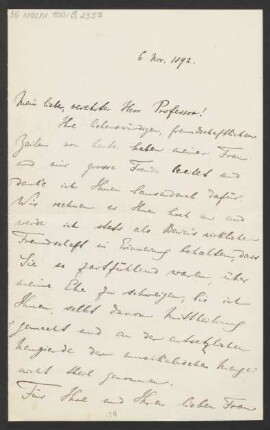 6 Nov. 1892.
Mein lieber, verehrter Herr Professor!
Ihre liebenswürdigen, freundschaftlichen
Zeilen von heute haben meiner Frau
und mir grosse Freude bereitet und
danke ich Ihnen tausendmal dafür.
Wir rechnen es Ihnen hoch an und
werde ich stets als Beweis wirklicher
Freundschaft in Erinnerung behalten, dass
Sie so zartfühlend waren, über
meine Ehe zu schweigen, bis ich
Ihnen selbst davon Mittheilung
gemacht und an der entsetzlichen
Neugierde der musikalischen Menge
nicht theil genommen.
Für Ihre und Ihrer lieben Frau